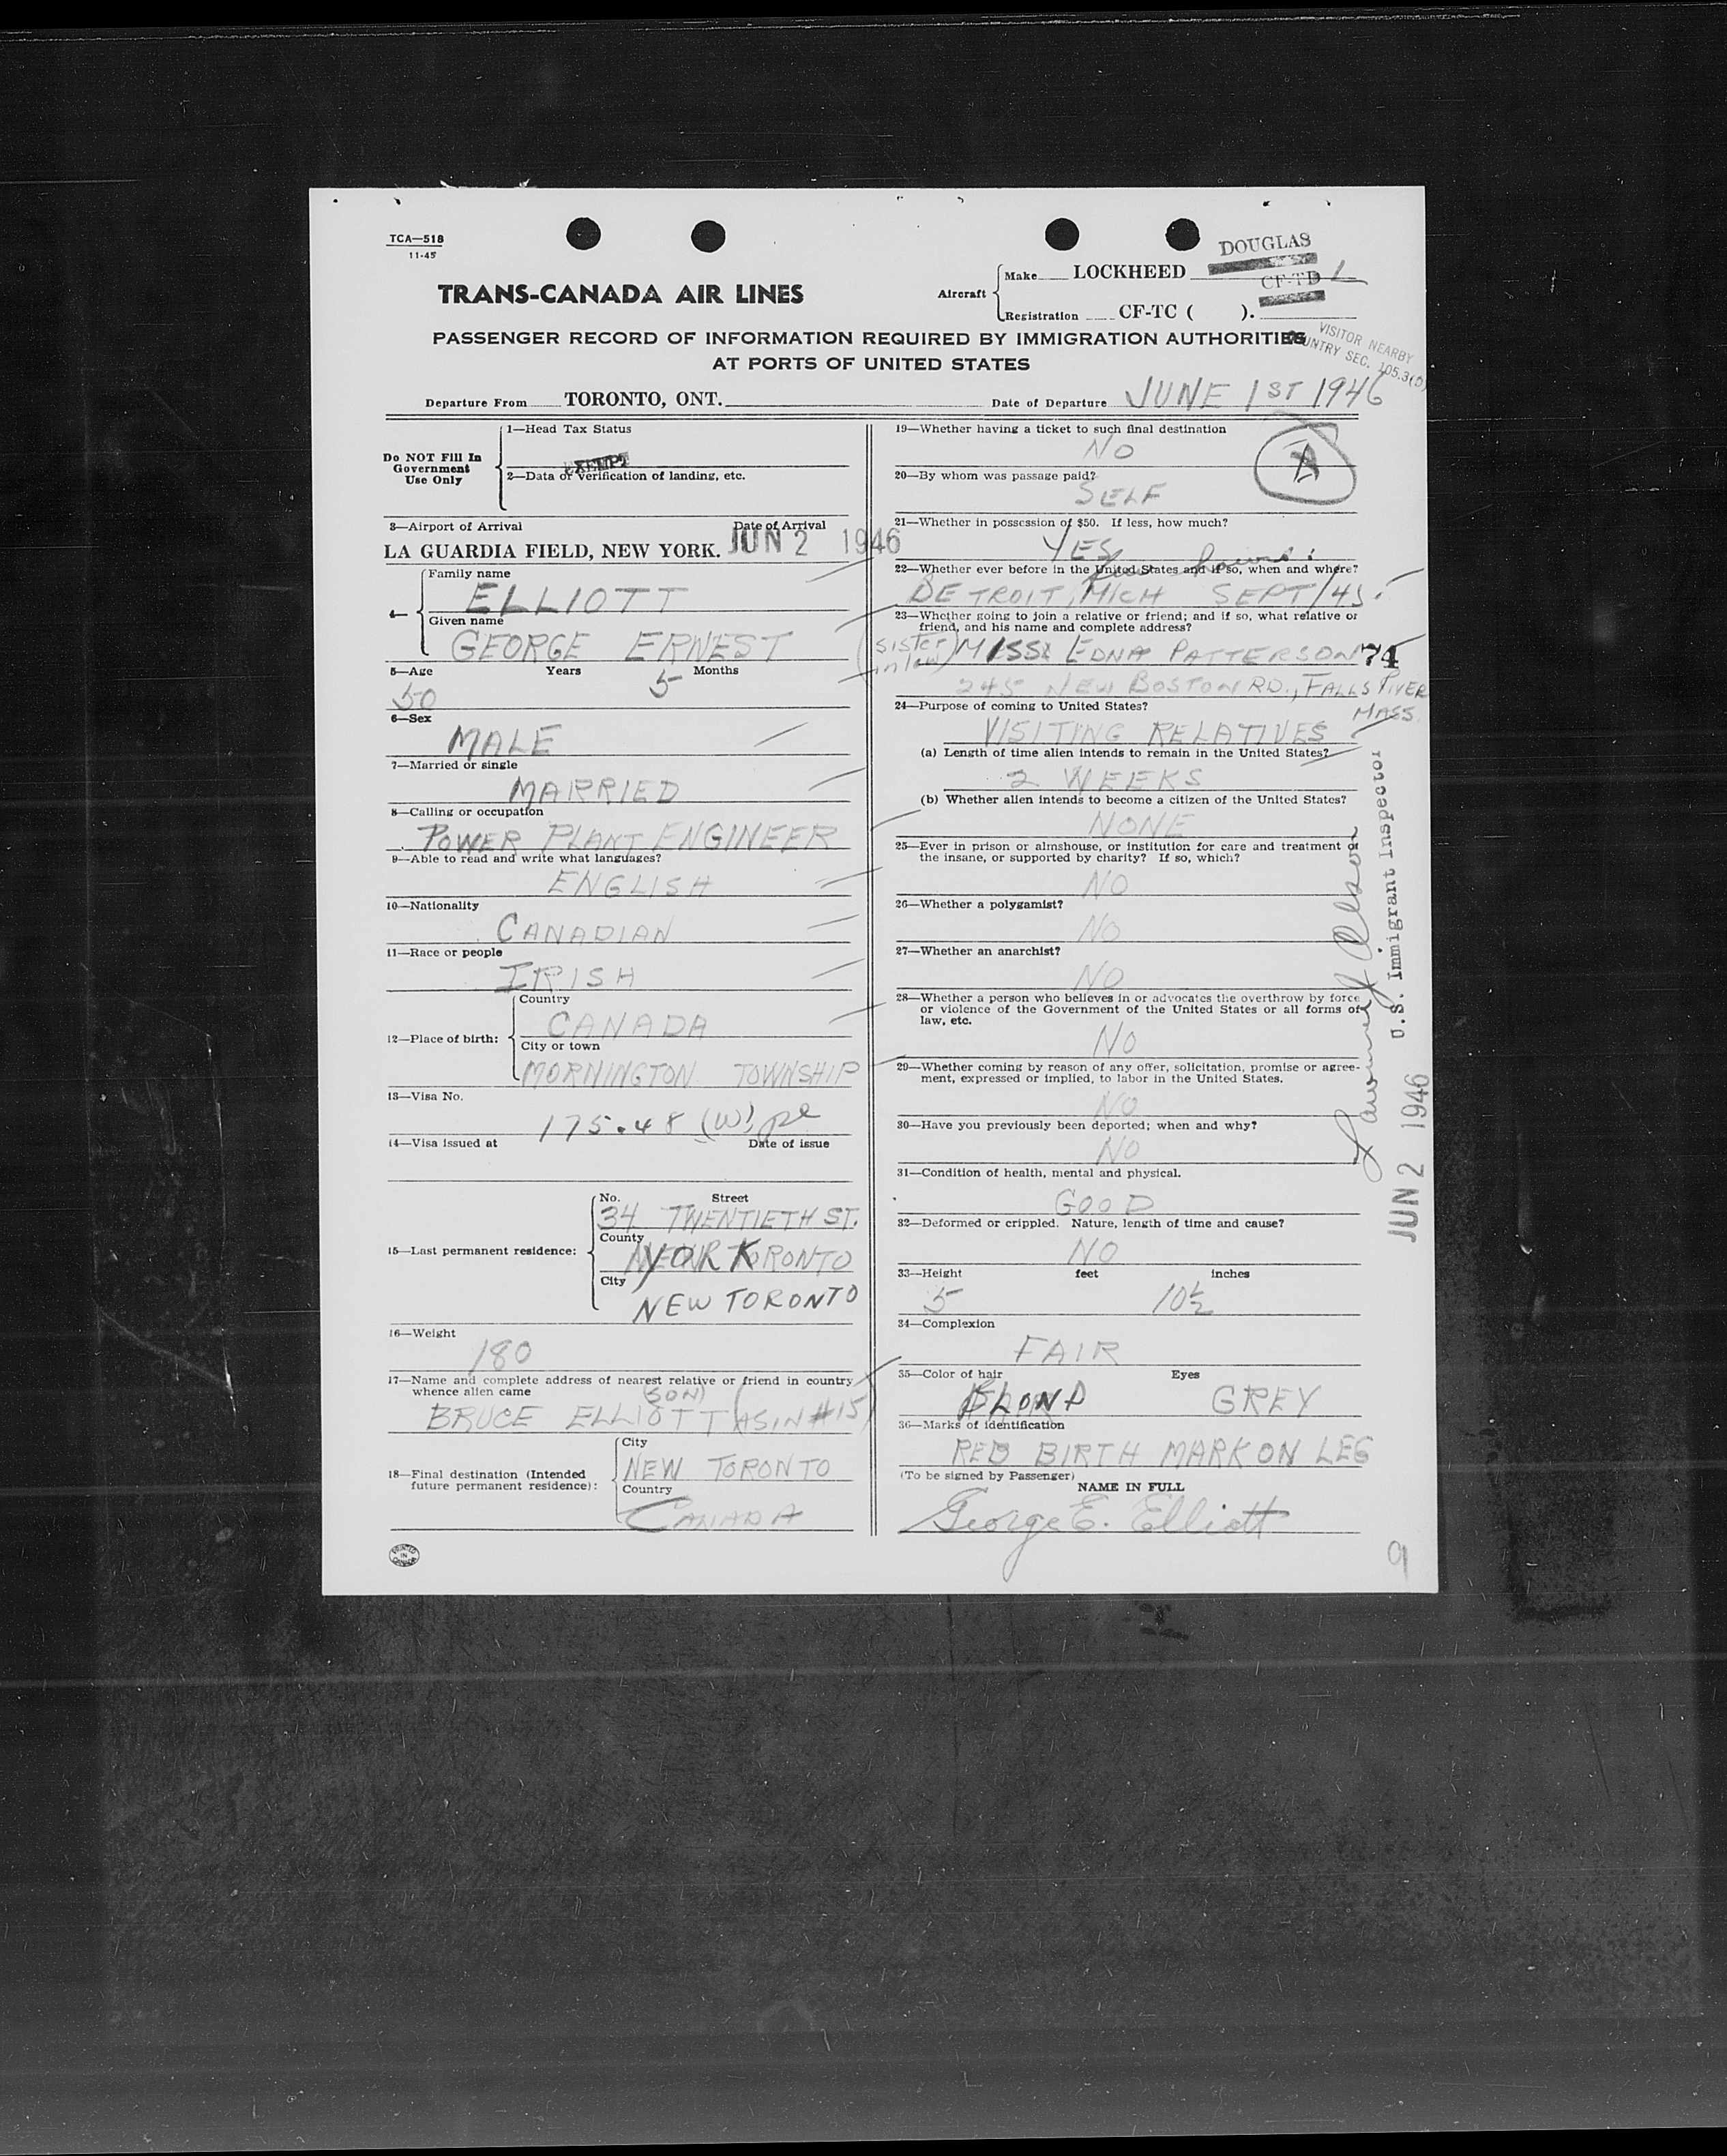 TCA—518
11-45
DOUGLAS
TRANS-CANADA AIR LINES
Aircraft
Make LOCKHEED
CF-TD 1
Registration CF-TC ( ).
PASSENGER RECORD OF INFORMATION REQUIRED BY IMMIGRATION AUTHORITIES
AT PORTS OF UNITED STATES
VISITOR NEARBY
COUNTRY SEC. 105.3(D)
Departure From TORONTO, ONT.
Date of Departure JUNE 1ST 1946
Do NOT Fill In
Government
Use Only
1—Head Tax Status
EXEMPT
2—Data or verification of landing, etc.
3—Airport of Arrival Date of Arrival
LA GUARDIA FIELD, NEW YORK. JUN 2 1946
4—
Family name
ELLIOTT
Given name
GEORGE ERNEST
5—Age Years Months
50 5
6—Sex
MALE
7—Married or single
MARRIED
8—Calling or occupation
POWER PLANT ENGINEER
9—Able to read and write what languages?
ENGLISH
10—Nationality
CANADIAN
11—Race or people
IRISH
12—Place of birth:
Country
CANADA
City or town
MORNINGTON TOWNSHIP
13—Visa No.
175.48 (W)
14—Visa issued at Date of issue
15—Last permanent residence:
No. Street
34 TWENTIETH ST.
County
YORK TORONTO
City
NEW TORONTO
16—Weight
180
17—Name and complete address of nearest relative or friend in country
whence alien came
(SON)
BRUCE ELLIOTT (AS IN #15)
18—Final destination (Intended
future permanent residence):
City
NEW TORONTO
Country
CANADA
PRINTED
IN
CANADA
19—Whether having a ticket to such final destination
NO
A
20—By whom was passage paid?
SELF
21—Whether in possession of $50. If less, how much?
YES
22—Whether ever before in the United States and if so, when and where?
few hours
DETROIT, MICH SEPT/45.
23—Whether going to join a relative or friend; and if so, what relative or
friend, and his name and complete address?
(sister in law) MISS EDNA PATTERSON 74
245 NEW BOSTON RD., FALLS RIVER
MASS.
24—Purpose of coming to United States?
VISITING RELATIVES
(a) Length of time alien intends to remain in the United States?
2 WEEKS
(b) Whether alien intends to become a citizen of the United States?
NONE
25—Ever in prison or almshouse, or institution for care and treatment of
the insane, or supported by charity? If so, which?
NO
26—Whether a polygamist?
NO
27—Whether an anarchist?
NO
28—Whether a person who believes in or advocates the overthrow by force
or violence of the Government of the United States or all forms of
law, etc.
NO
29—Whether coming by reason of any offer, solicitation, promise or agree-
ment, expressed or implied, to labor in the United States.
NO
30—Have you previously been deported; when and why?
NO
31—Condition of health, mental and physical.
GOOD
32—Deformed or crippled. Nature, length of time and cause?
NO
33—Height feet inches
5 10½
34—Complexion
FAIR
35—Color of hair Eyes
BLOND GREY
36—Marks of identification
RED BIRTH MARK ON LEG
(To be signed by Passenger)
NAME IN FULL
George E. Elliott
9
U.S. Immigrant Inspector
JUN 2 1946